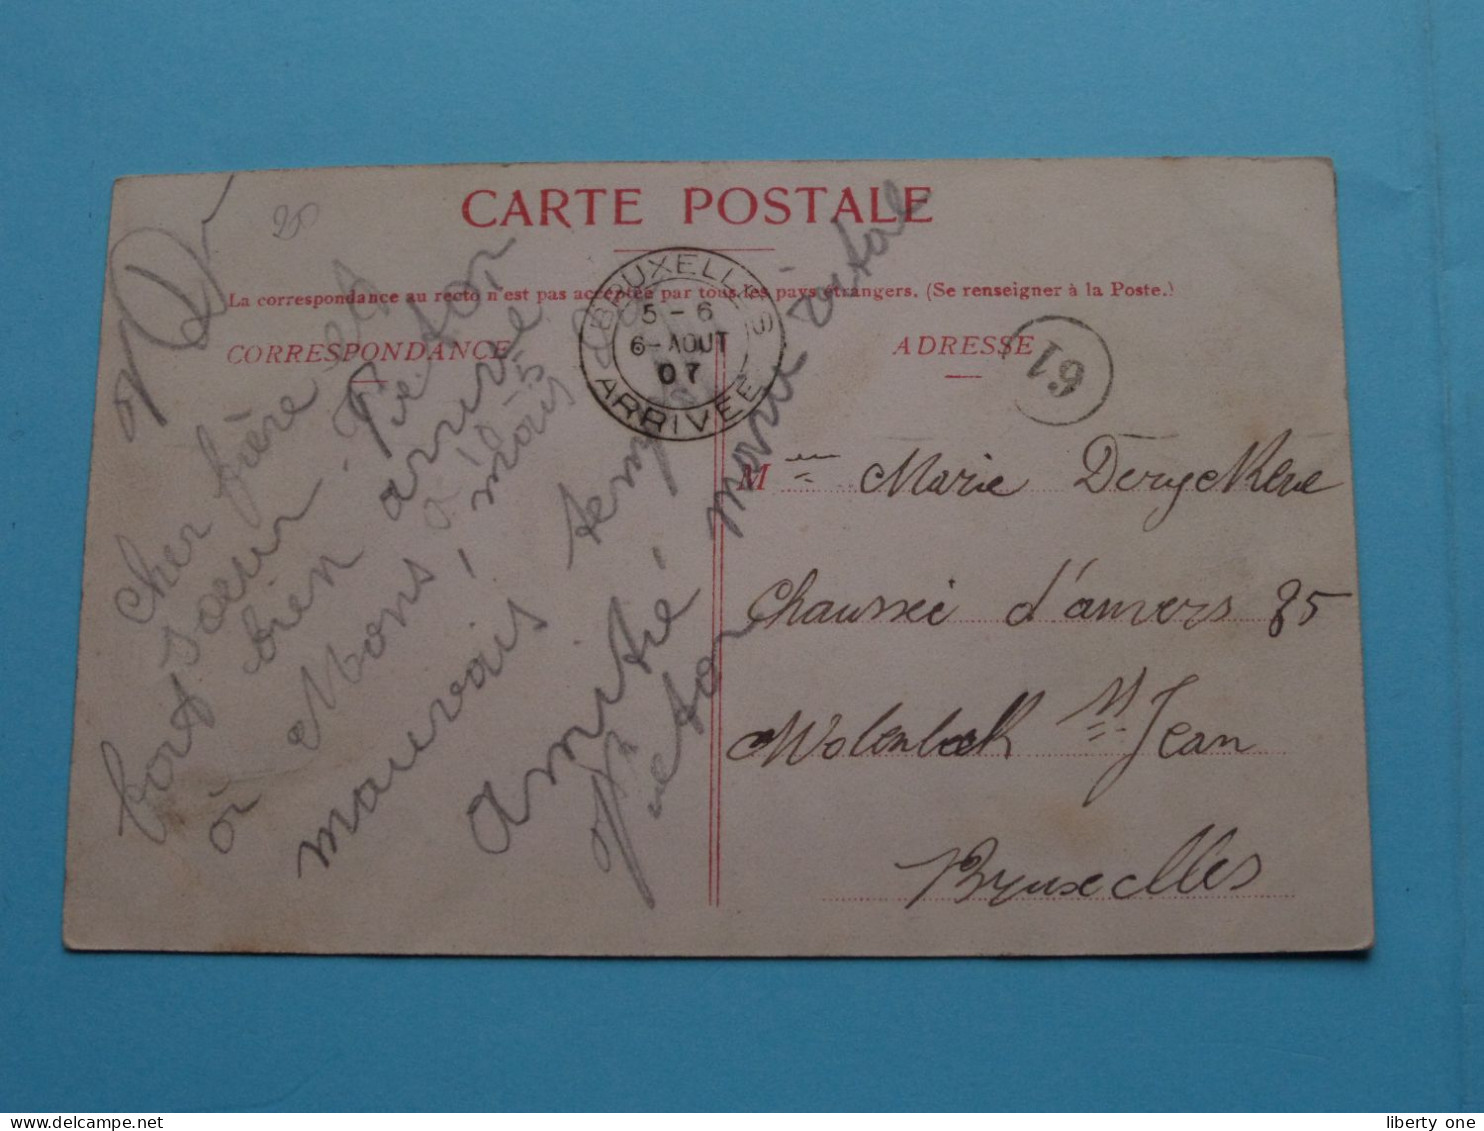 CARTE POSTALE
La correspondance au recto n'est pas acceptée par tous les pays étrangers. (Se renseigner à la Poste.)
CORRESPONDANCE
ADRESSE
BRUXELLES
5 - 6
6 - AOUT
07
ARRIVÉE
61
cher frère et
soeur
bien arrivé
à Mons, à
mauvais temps
amitié,
Marie
M me Marie Deryckere
Chaussée d'anvers 85
Molenbeek St Jean
Bruxelles
liberty one